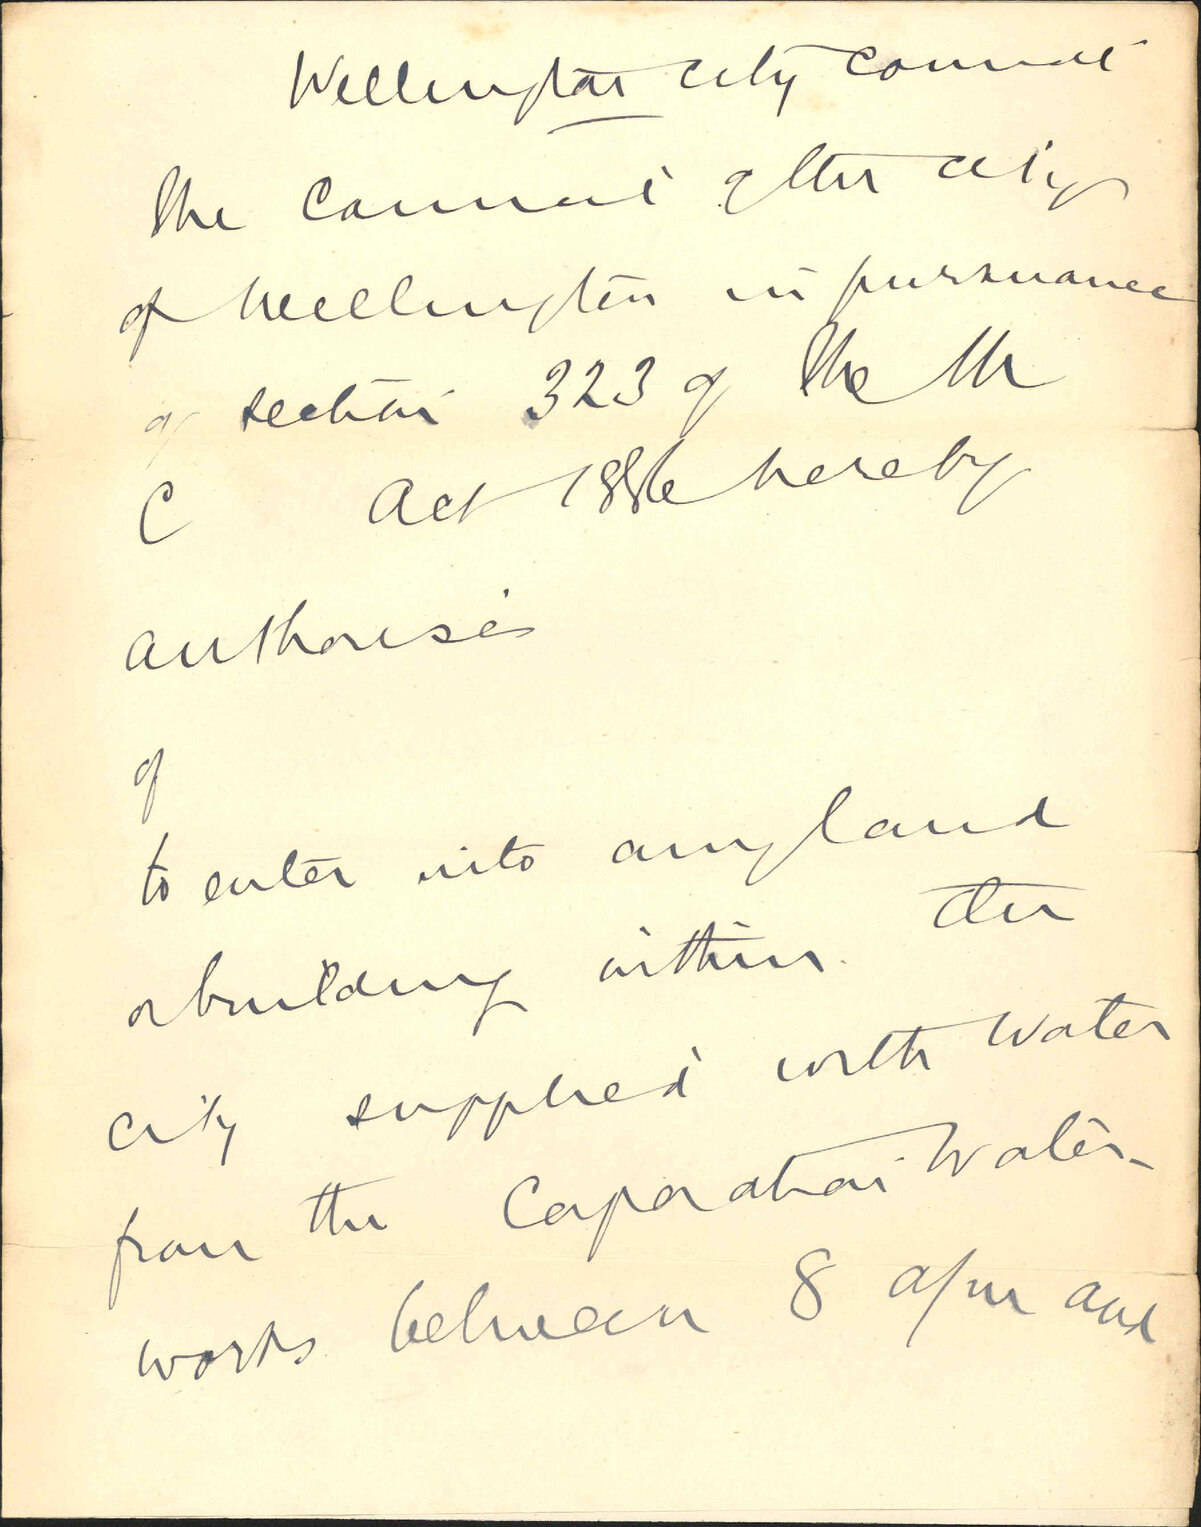 Wellington City Council
The Council of the City
of Wellington in pursuance
of section 323 of The M
C Act 1886 hereby
authorise
of
to enter into any land
or building within the
city supplied with water
from the Corporation Water-
works between 8 a/m and